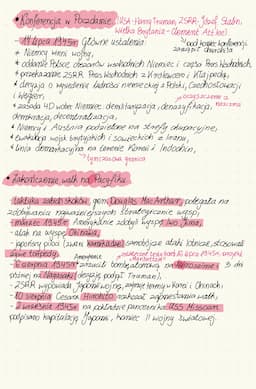 • Konferencja w Poczdamie: (USA-Harry Truman, ZSRR-Józef Stalin,
Wielka Brytania - Clement Attlee)
- 17 lipca 1945r. Główne ustalenia:
pod koniec konferencji
zastąpił Churchilla
• Niemcy winni wojny,
• oddanie Polsce obszarów wschodnich Niemiec i części Prus Wschodnich,
• przekazanie ZSRR Prus Wschodnich z Królewcem i Kłajpedą,
• decyzja o wysiedleniu ludności niemieckiej z Polski, Czechosłowacji
i Węgier,
oczyszczenie z
nazizmu
• zasada 4D wobec Niemiec: demilitaryzacja, denazyfikacja,
demokracja, decentralizacja,
• Niemcy i Austria podzielone na strefy okupacyjne,
• ewakuacja wojsk brytyjskich i sowieckich z Iranu,
• linia demarkacyjna na terenie Korei i Indochin,
tymczasowa granica
• Zakończenie walk na Pacyfiku
- taktyka żabich skoków, gen. Douglas MacArthur, polegała na
zdobywaniu najważniejszych strategicznie wysp,
- marzec 1945r. Amerykanie zdobyli wyspę Iwo Jima,
- atak na wyspę Okinawa,
- japońscy piloci (zwani kamikadze) samobójcze ataki lotnicze, stosowali
żywe torpedy,
- 6 sierpnia 1945r. zrzucili bombę atomową na Hiroszimę i 3 dni
Amerykanie
później na Nagasaki (decyzję podjął Truman),
- ZSRR wypowiada Japonii wojnę, zajmuje tereny w Korei i Chinach,
- 10 sierpnia Cesarz Hirohito rozkazał zaprzestania walk,
- 2 wrzesień 1945r. na pokładzie pancernika USS Missouri
podpisano kapitulację Japonii, koniec II wojny światowej.